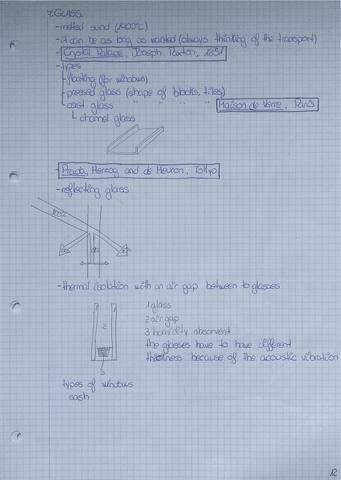 7. GLASS
- melted sand (1400°C)
- it can be as long as wanted (always thinking of the transport)
- Crystal Palace, Joseph Paxton, 1851
- types
- floating (for windows)
- pressed glass (shape of blocks, tiles)
- cast glass " " " Maison de Verre, Paris
channel glass
- Prada, Herzog and de Meuron, Tokyo
- reflecting glass
100%
- thermal isolation with an air gap between to glasses
1 glass
2 air gap
3 humidity absorvent
the glasses have to have different
thickness because of the acoustic vibration
2
3
types of windows
sash
12